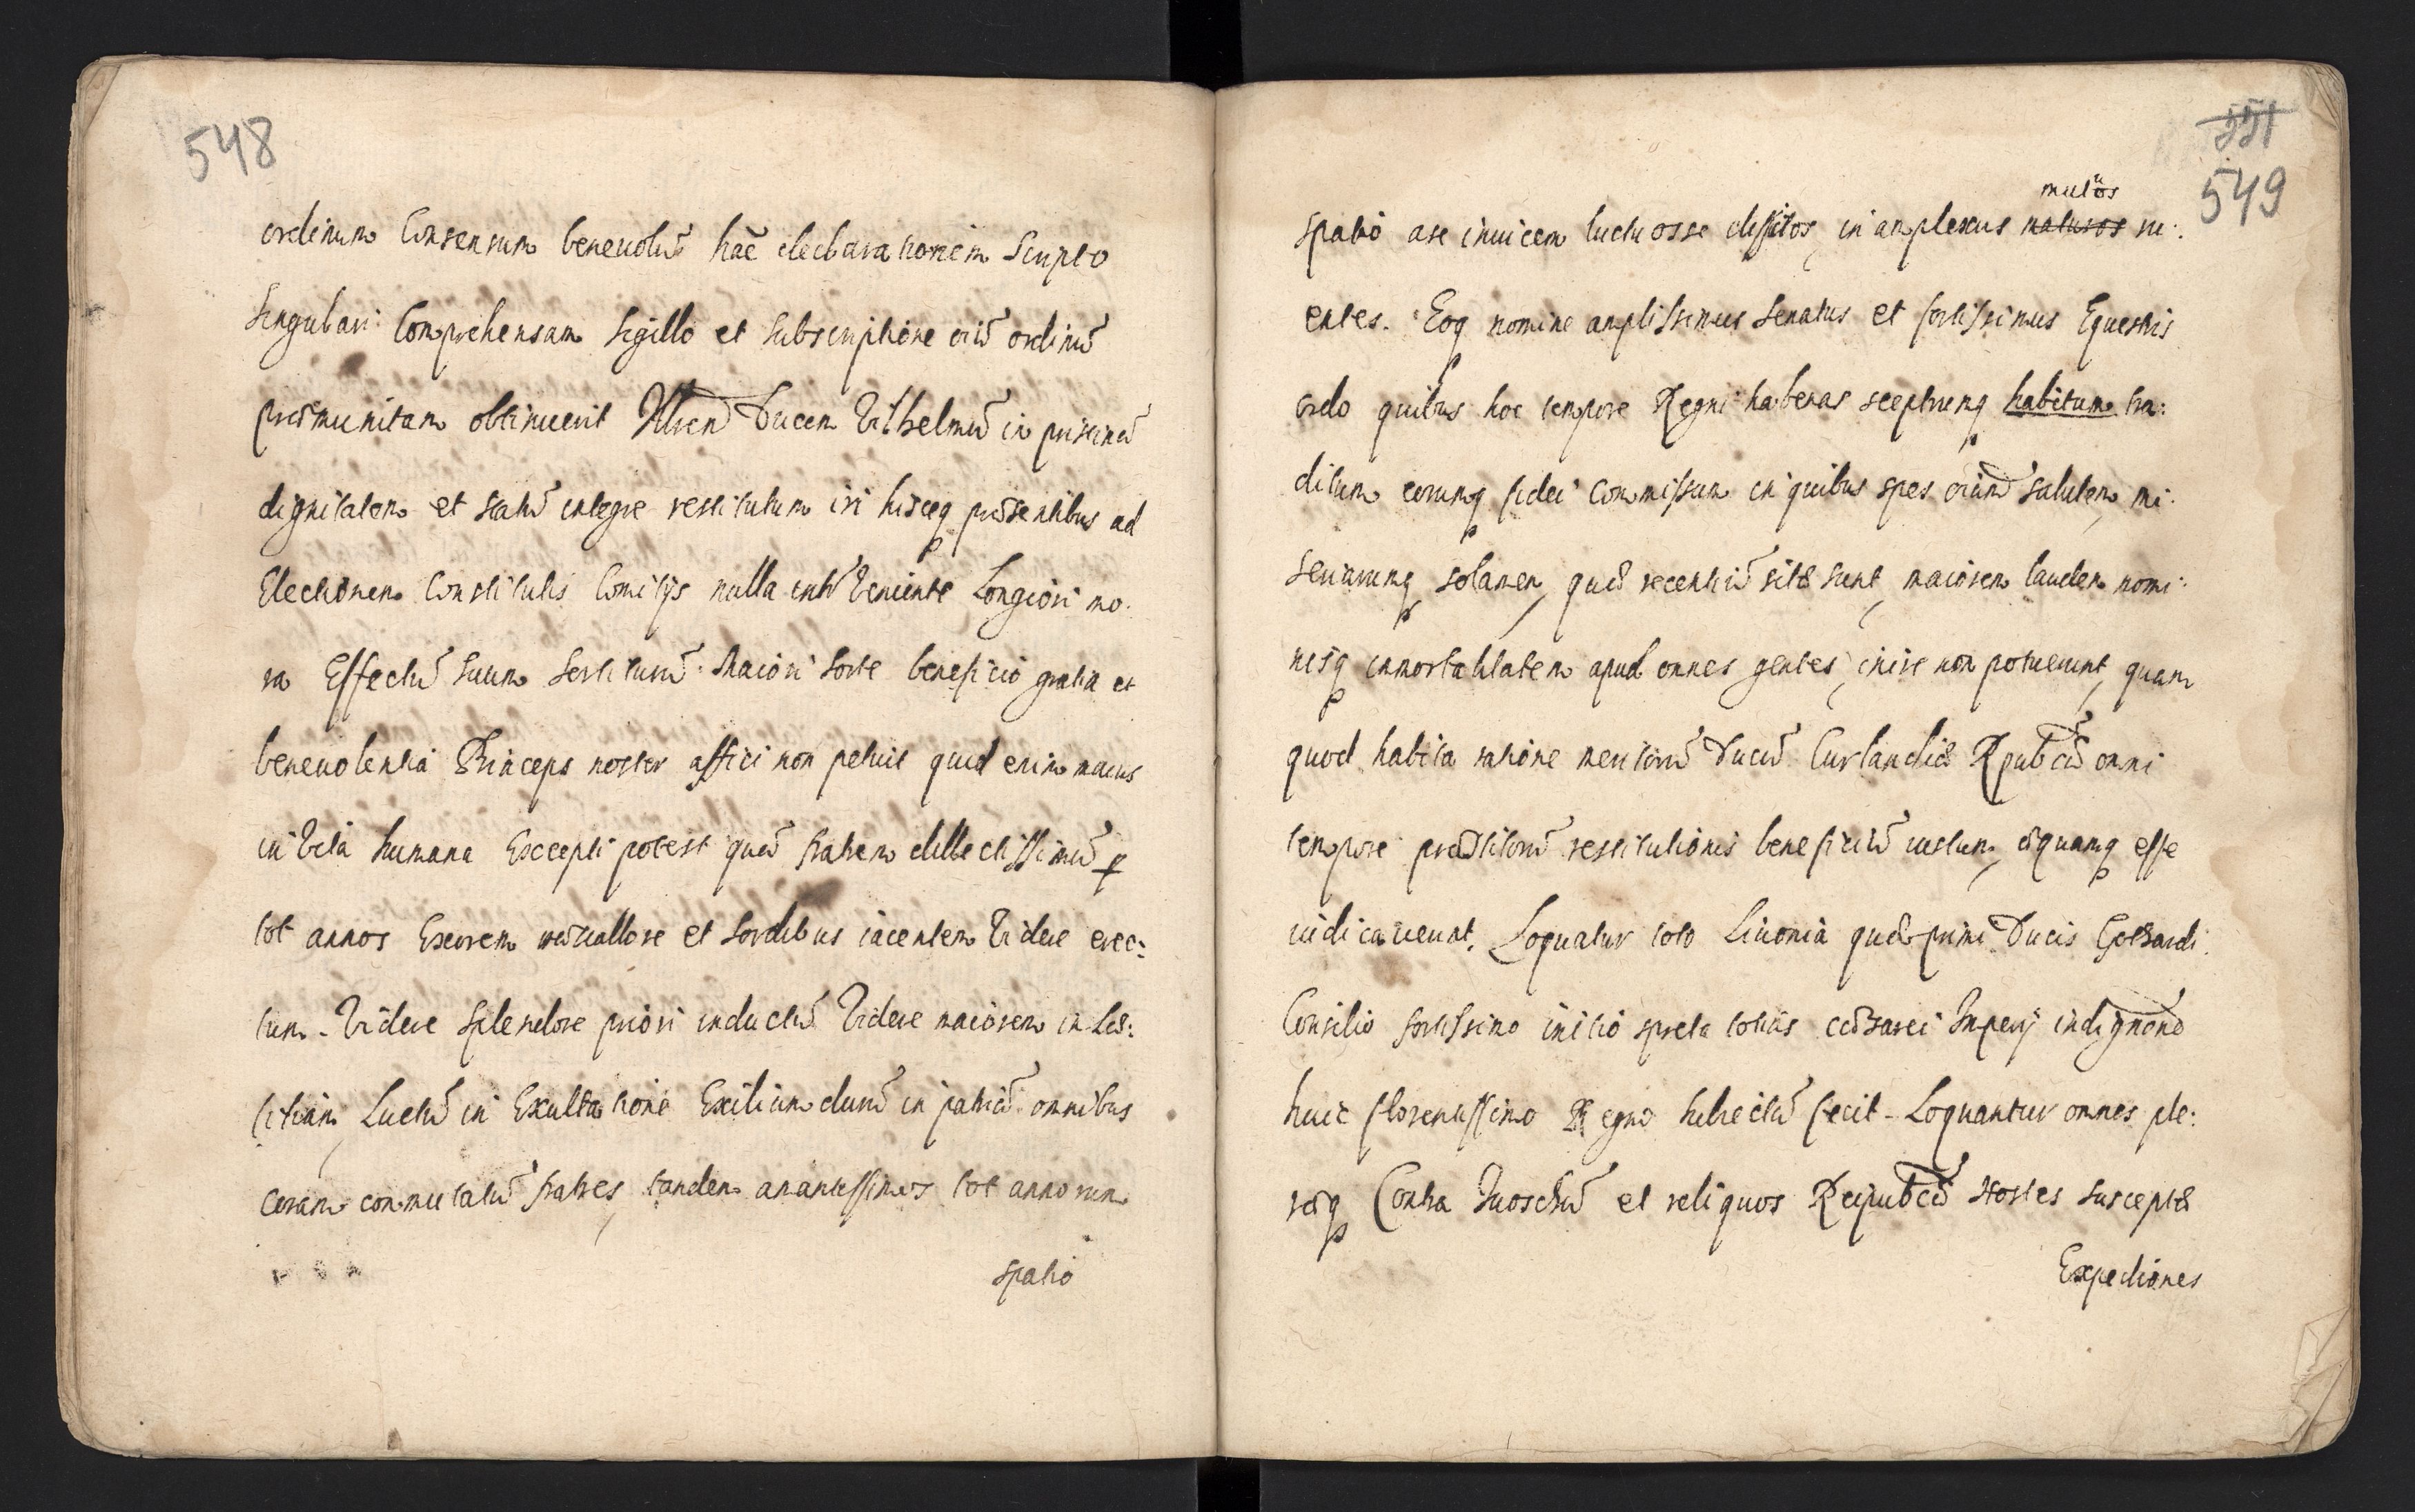 548
ordinum Consensum beneuolũ hãc declarationem Scripto
Singulari Comprehensam Sigillo et Subscriptione oiũ ordinũ
præmunitam obtinuerit Illren Ducem Vilhelmũ in pristinũ
dignitatem et statũ integre restitutum iri hisceq præsentibus ad
Electionem Constitutis Comitijs nulla intrveniente Longiori mo:
ra Effectũ suum Sortiturũ. Maiori sorte beneficio gratia et
beneuolentia Princeps noster affici non petuit quid enim maius
in vita humana Excepti potest quã fratrem dillectissimũ p
tot annos Exorem et sordibus iacentem Videre erec:
tum. Videre splendore priori inductũ Videre maiorem in Læ:
titiam, Luctũ in Exultatione Exilium durũ in patriã omnibus
coram commutatũ fratres, tandem amantissimos tot annorum
spatio
551
549
mutuos
spatio ase inuicem luctuosse dissitos, in amplexus matusos ru:
entes. Eoq nomine amplissimus Senatus et fortissimus Equestris
ordo quibus hoc tempore Regni habenas sceptrumq habitum tra:
ditum eorumq fidei Commissum in quibus spes oium salutem, mi:
seriarumq solamen, quæ recentiũ sitæ sunt, maiorem laudem nomi:
nisq immortalitatem apud omnes gentes, inire non potuerunt, quam
quod habita ratione meritorũ Ducũ Curlandiæ Rpubcæ omni
tempore præstitorũ restitutionis beneficiũ iustum, æquamq esse
iudicauerint. Loquatur toto Liuonia quæ primi Ducis Gothardi
Consilio fortissimo initio spreta totiũs cæsarei Imperij indignõne
huic florentissimo Regno subiectũ fecit. Loquantur omnes ple:
ræq Contra Moschũ et reliquos Reipubcæ Hostes susceptæ
Expediones